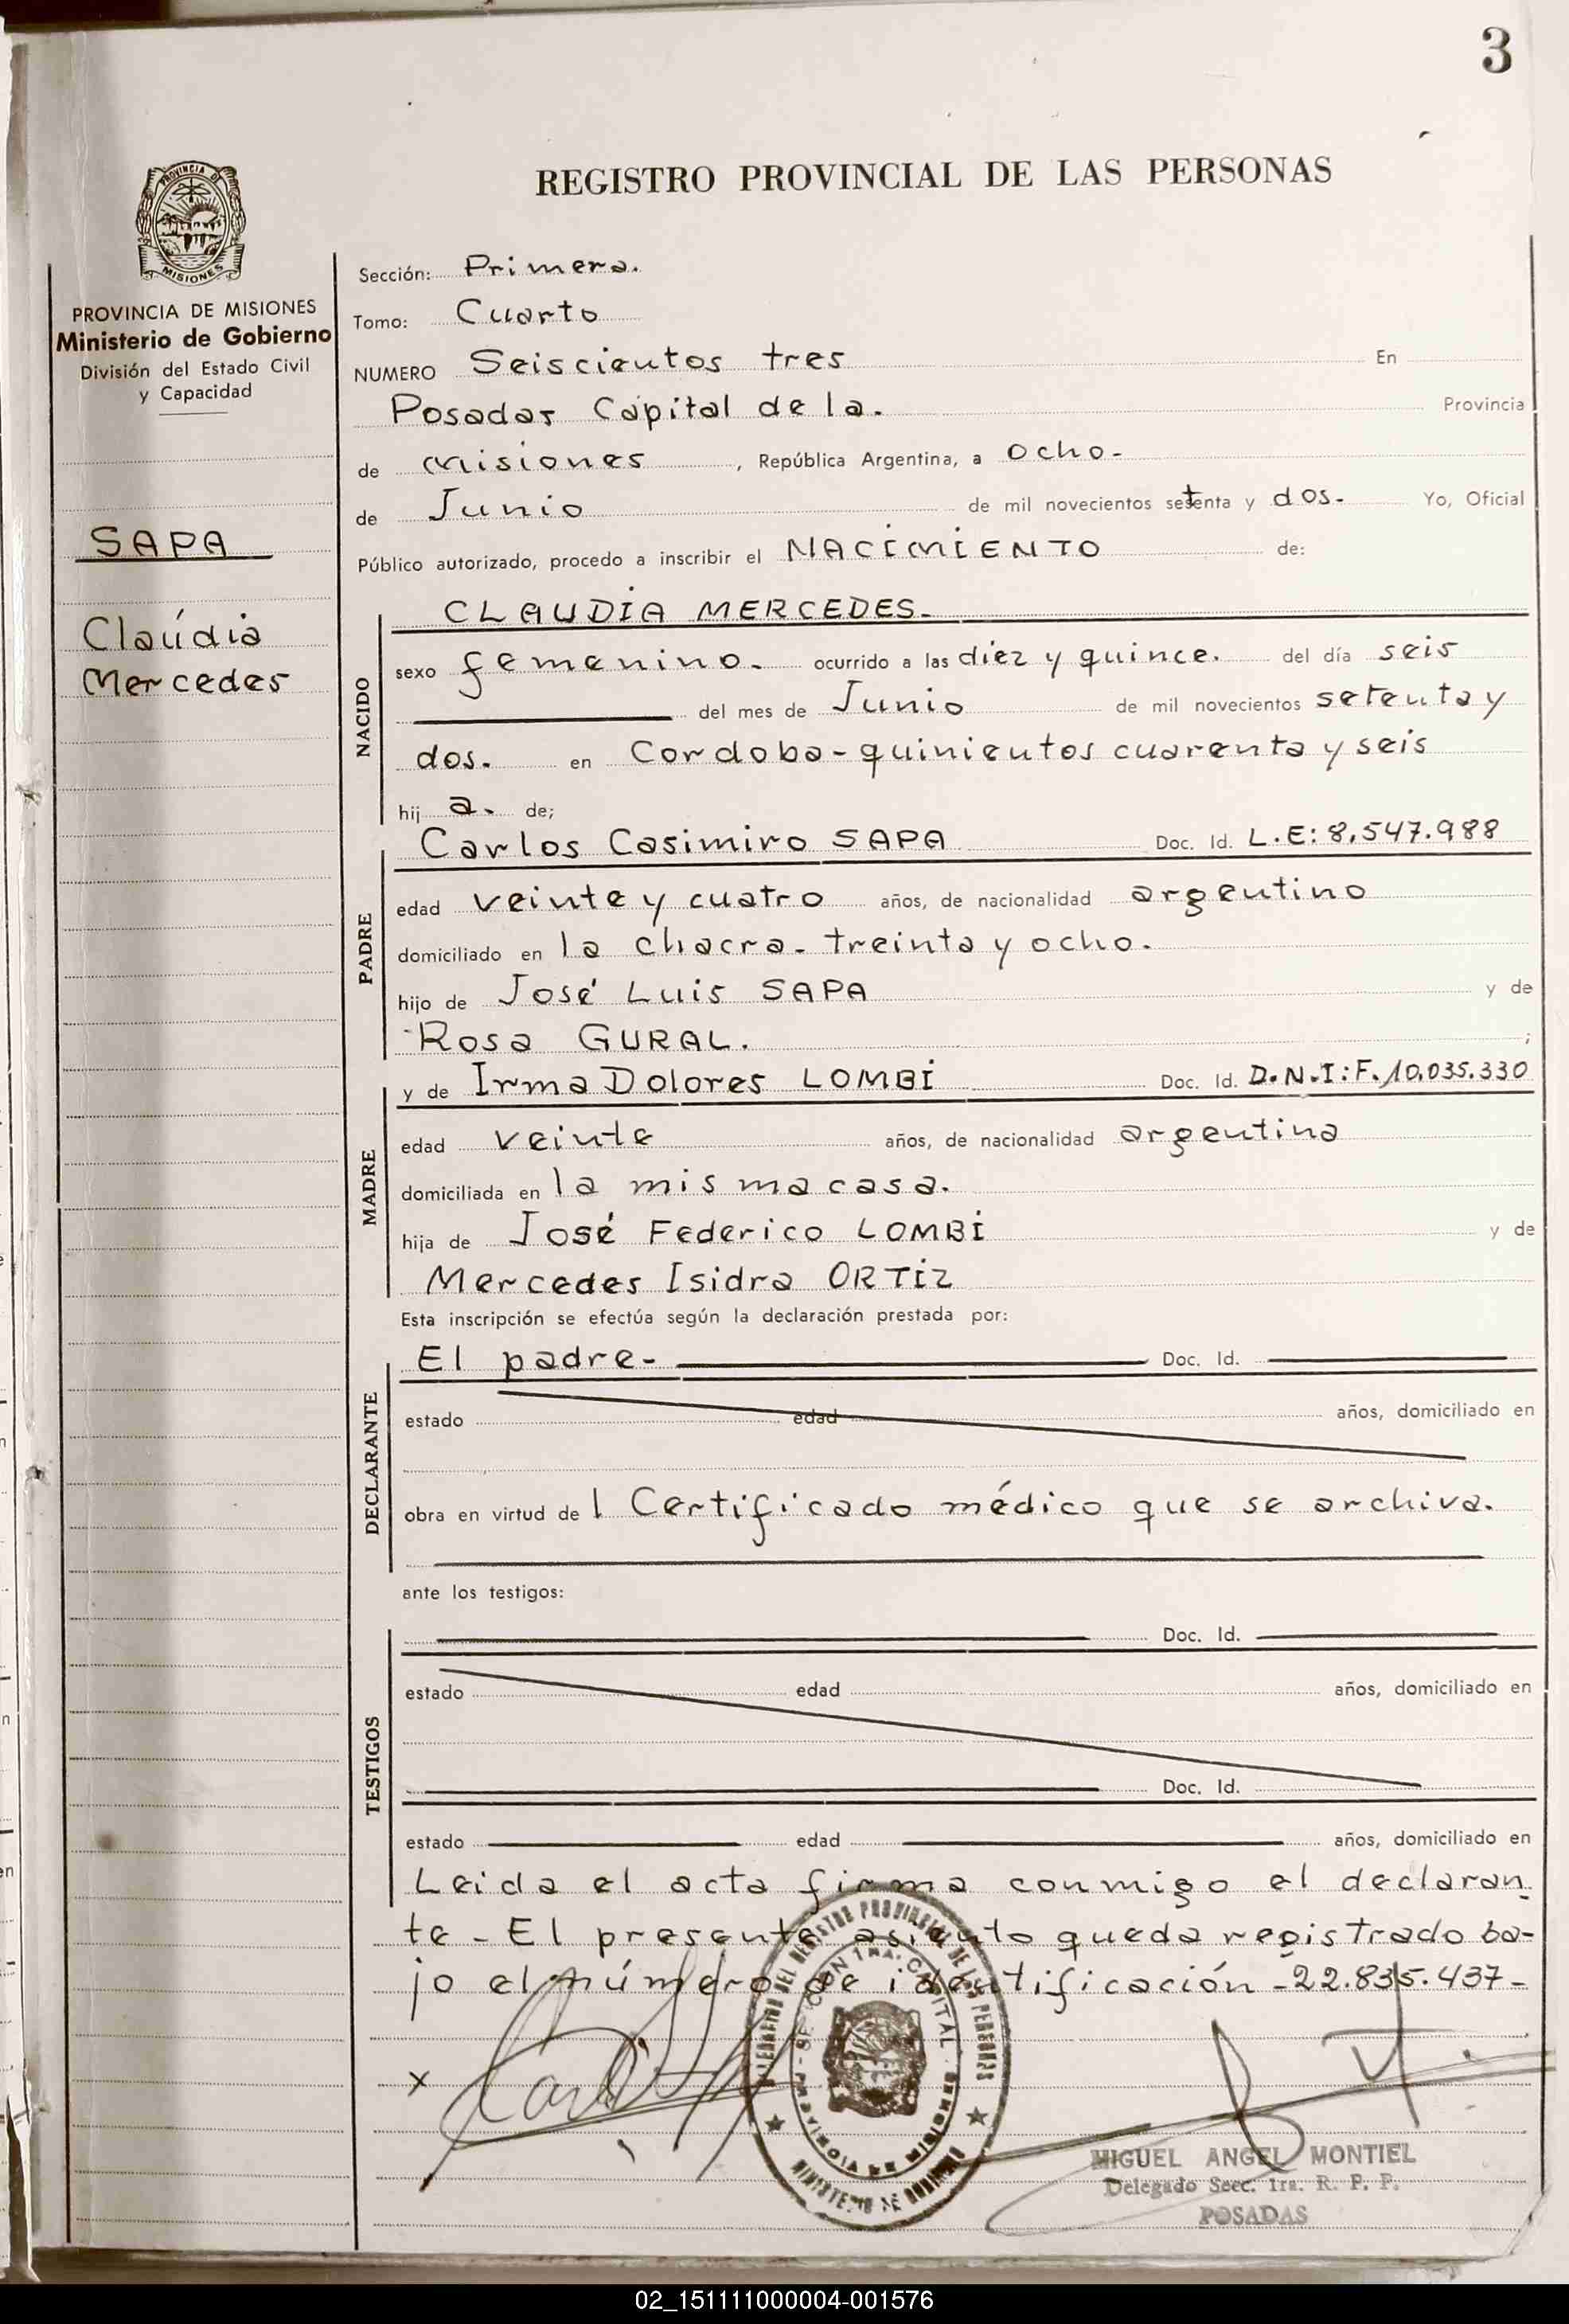 3
REGISTRO PROVINCIAL DE LAS PERSONAS
PROVINCIA DE MISIONES
PROVINCIA DE MISIONES
Ministerio de Gobierno
División del Estado Civil
y Capacidad
SAPA
Claúdia
Mercedes
Sección: Primera.
Tomo: Cuarto
NUMERO Seiscientos tres En
Posadas Capital de la. Provincia
de Misiones , República Argentina, a ocho-
de Junio de mil novecientos setenta y dos. Yo, Oficial
Público autorizado, procedo a inscribir el NACIMIENTO de:
NACIDO
CLAUDIA MERCEDES-
sexo femenino. ocurrido a las diez y quince. del día seis
del mes de Junio de mil novecientos setenta y
dos. en Cordoba-quinientos cuarenta y seis
hij a. de;
PADRE
Carlos Casimiro SAPA Doc. Id. L.E: 8.547.988
edad veinte y cuatro años, de nacionalidad argentino
domiciliado en la chacra- treinta y ocho.
hijo de José Luis SAPA y de
Rosa GURAL. ;
MADRE
y de Irma Dolores LOMBI Doc. Id. D.N.I: F. 10.035.330
edad veinte años, de nacionalidad argentina
domiciliada en la misma casa.
hija de José Federico LOMBI y de
Mercedes Isidra ORTIZ
Esta inscripción se efectúa según la declaración prestada por:
DECLARANTE
El padre- Doc. Id.
estado edad años, domiciliado en
obra en virtud de l Certificado médico que se archiva.
ante los testigos:
TESTIGOS
Doc. Id.
estado edad años, domiciliado en
Doc. Id.
estado edad años, domiciliado en
Leida el acta firma conmigo el declaran
te - El presente asiento queda registrado ba-
jo el número de identificación -22.835.437-
x
MIGUEL ANGEL MONTIEL
Delegado Secc. 1ra. R. P. P.
POSADAS
02_151111000004-001576